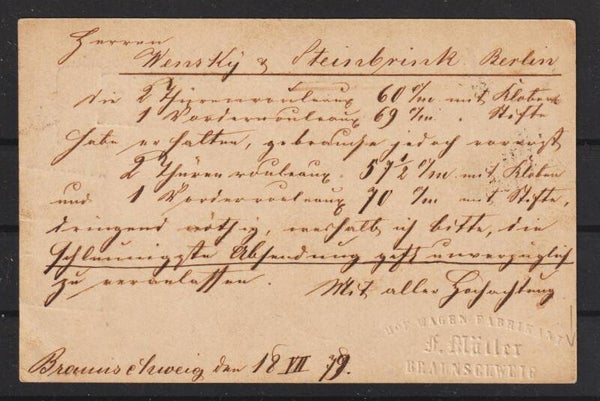 Herren
Wensky & Steinbrink. Berlin
Die 2 Thürenrouleaux 60 c/m mit Kloben
1 Vorderrouleaux 69 c/m " Stifte
habe erhalten, gebrauche jedoch vorerst
2 Thürenrouleaux. 57½ c/m mit Kloben
und 1 Vorderrouleaux 70 c/m mit Stifte,
dringend nöthig, weshalb ich bitte, die
schleunigste Absendung gefl unverzüglich
zu veranlassen. Mit aller Hochachtung
HOF WAGEN-FABRIKANT
F. Müller
BRAUNSCHWEIG
Braunschweig den 18 VII 79.